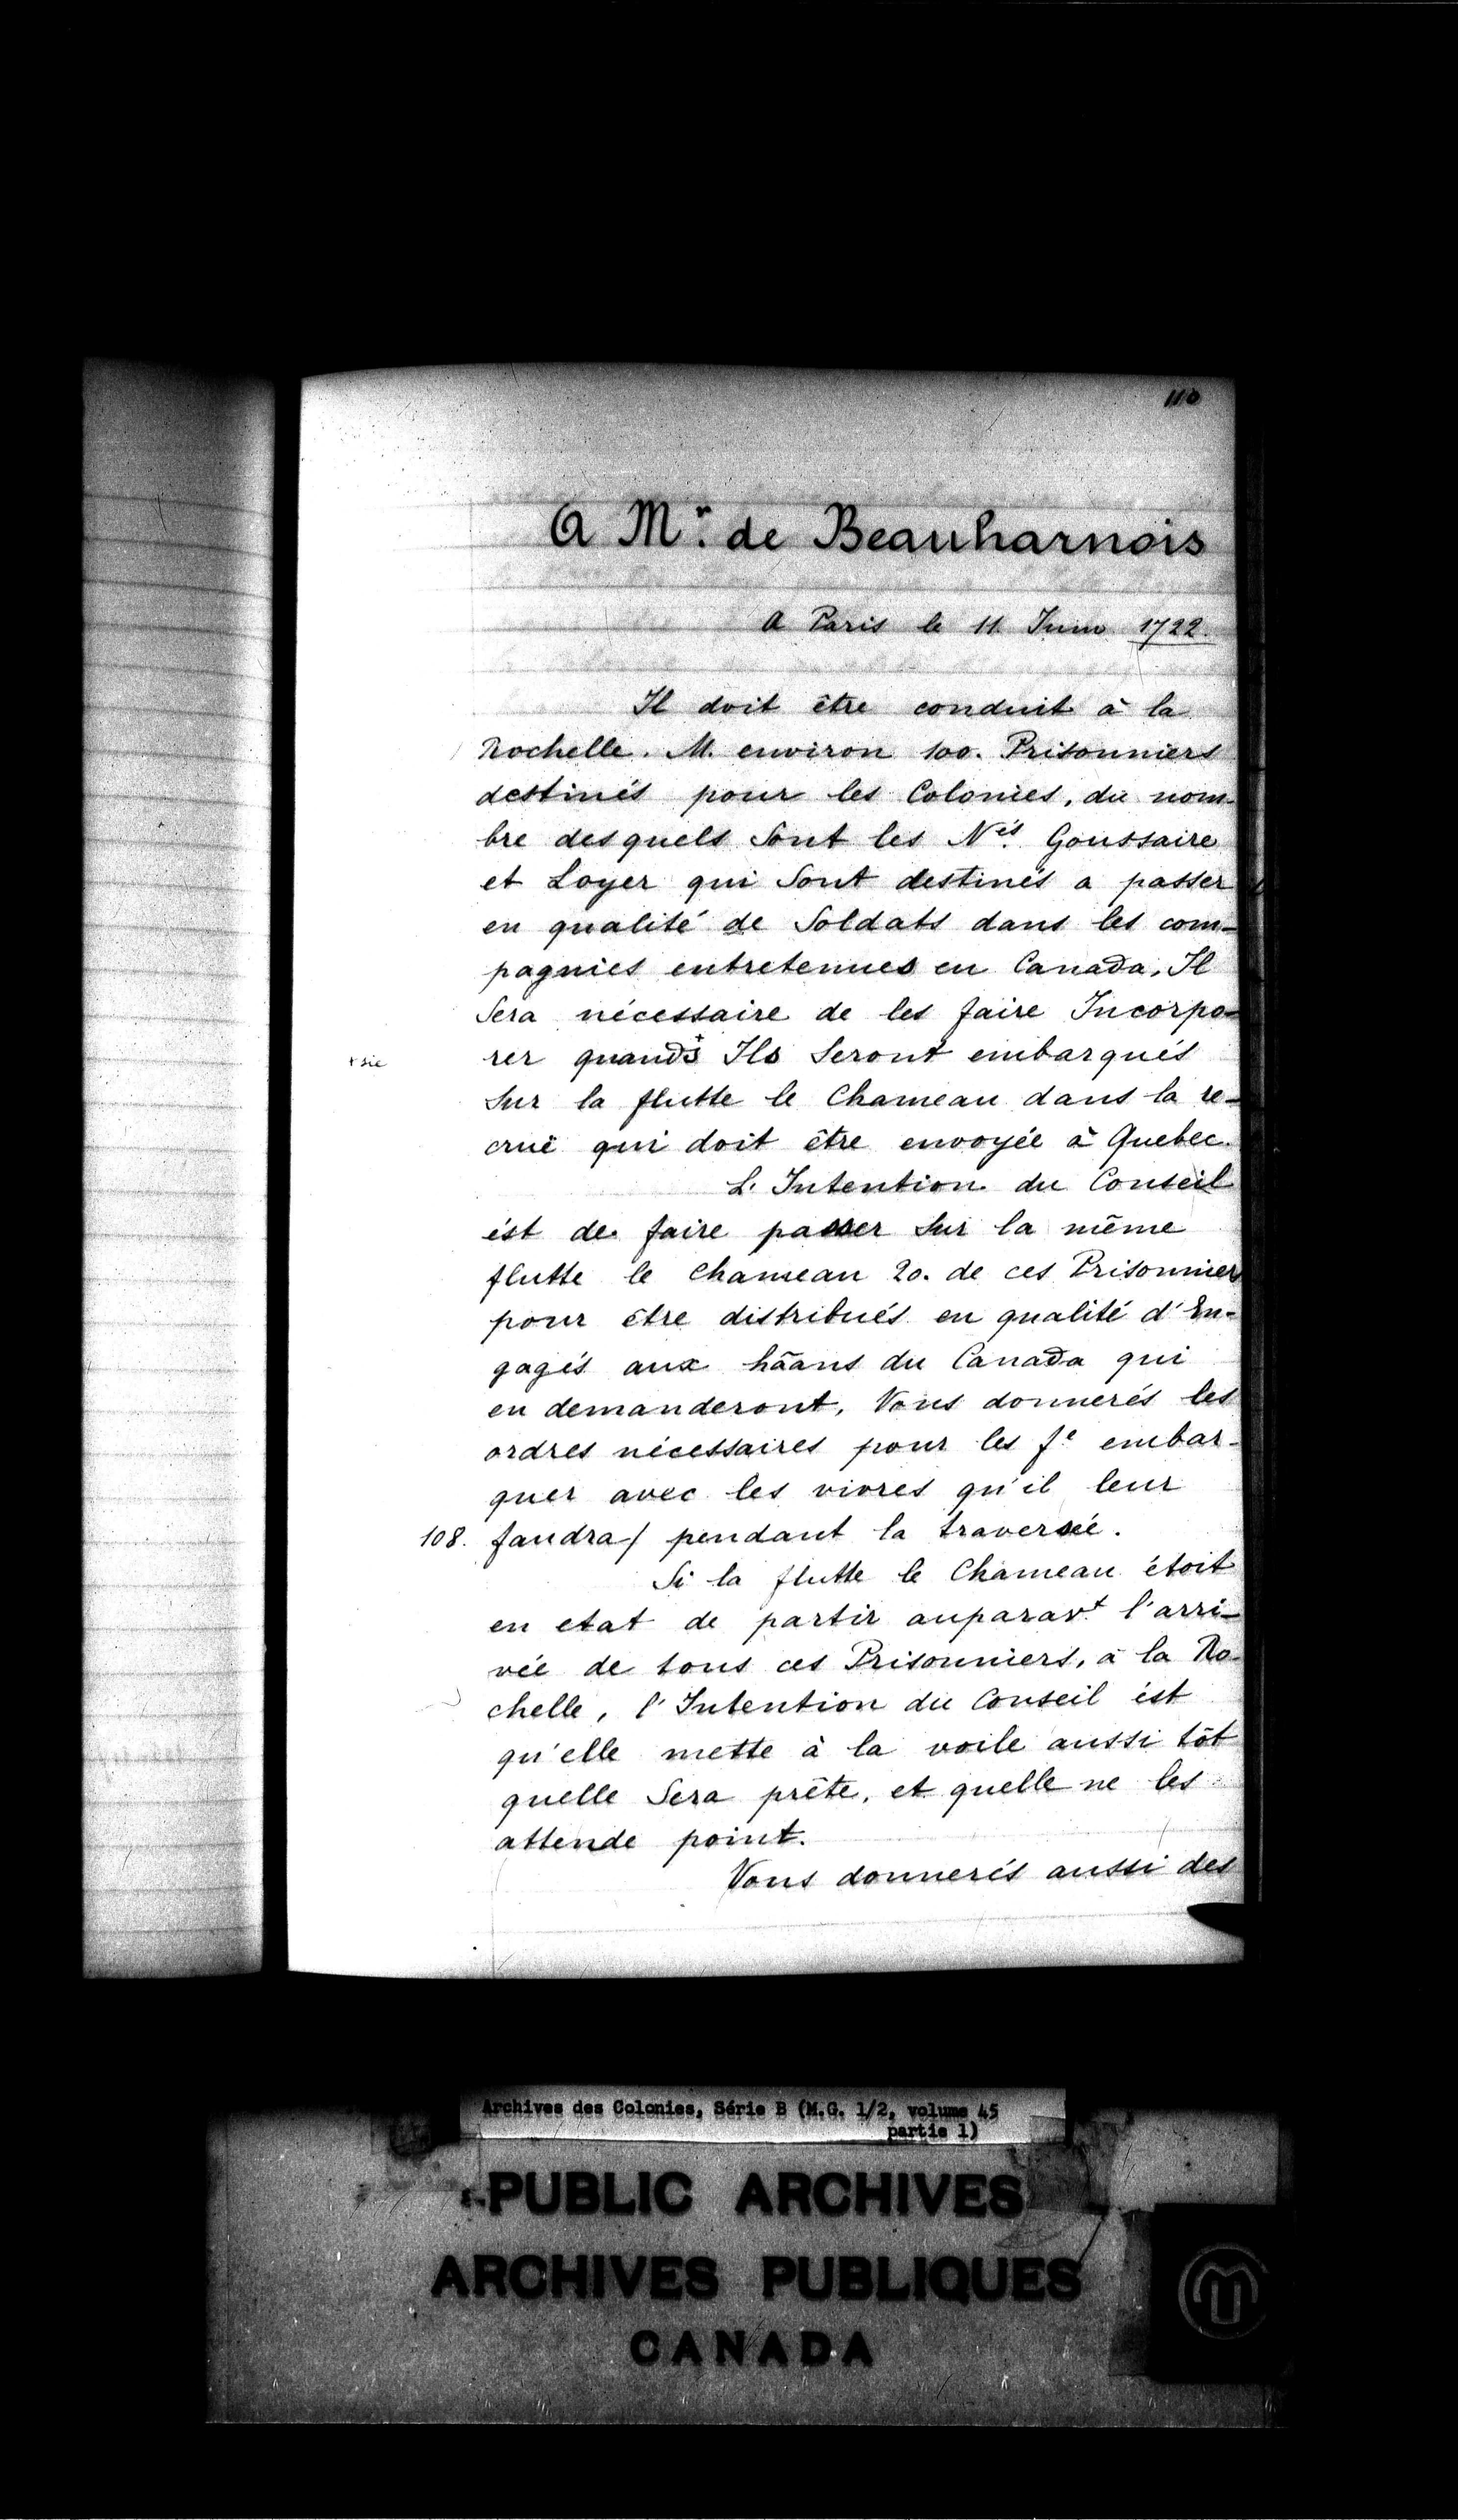 110
A Mr. de Beauharnois
A Paris le 11 Juin 1722.
Il doit être conduit à la
Rochelle. M. environ 100. Prisonniers
destinés pour les Colonies, du nom-
bre desquels Sont les Nés. Goussaire
et Loyer qui Sont destinés a passer
en qualité de Soldats dans les com-
pagnies entretenues en Canada, Il
Sera nécessaire de les faire Incorpo-
+ sic rer quands+ Ils Seront embarqués
Sur la flutte le Chameau dans la re-
cruë qui doit être envoyée à Quebec.
L'Intention du Conseil
ést de faire passer Sur la même
flutte le Chameau 20. de ces Prisonniers
pour être distribués en qualité d'En-
gagés aux hãans du Canada qui
en demanderont, Vous donnerés les
ordres nécessaires pour les fe embar-
quer avec les vivres qu'il leur
108. faudra/ pendant la traversée.
Si la flutte le Chameau étoit
en etat de partir auparavt l'arri-
vée de tous ces Prisonniers, à la Ro-
chelle, l'Intention du Conseil ést
qu'elle mette à la voile aussi tôt
quelle Sera prête, et quelle ne les
attende point.
Vous donnerés aussi des
Archives des Colonies, Série B (M.G. 1/2, volume 45
partie 1)
PUBLIC ARCHIVES
ARCHIVES PUBLIQUES
CANADA